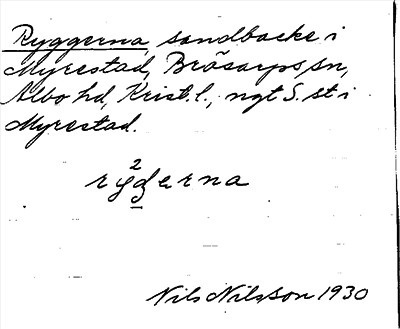 Ryggerna, sandbacke i
Myrestad, Brösarps sn,
Albo hd, Krist. l., ngt S. st i
Myrestad.
2
rygerna
Nils Nilsson 1930